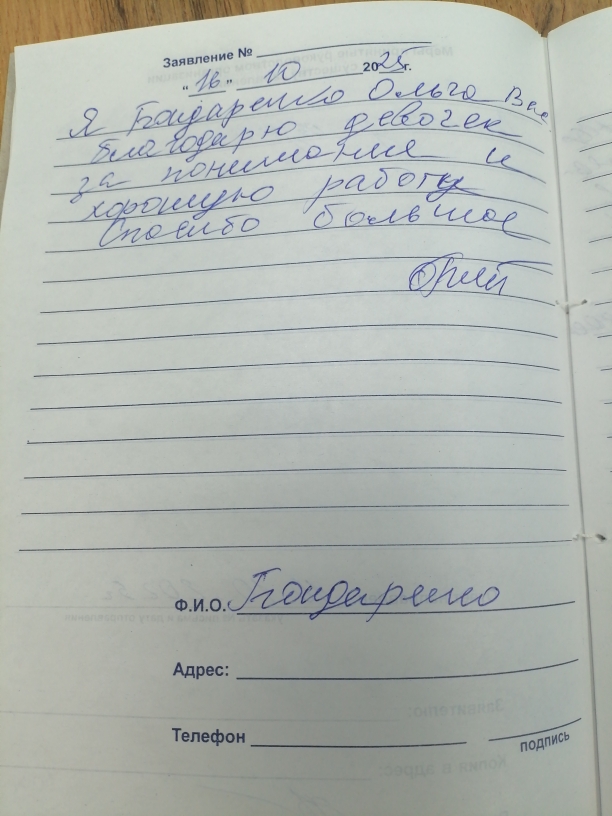 Заявление №
"16" 10 2025г.
Я Бондаренко Ольга Вас
благодарю девочек
за понимание и
хорошую работу
Спасибо большое
Ф.И.О. Бондаренко
Адрес:
Телефон
подпись